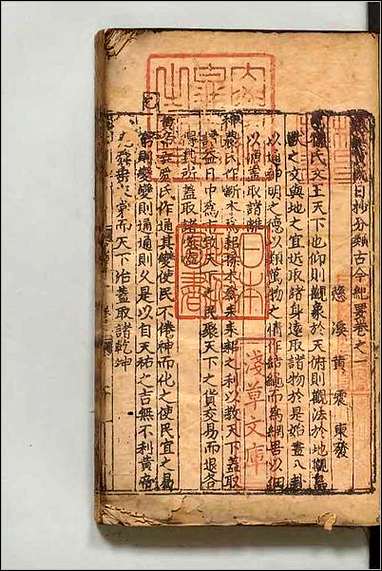 氏日抄分類古今紀要卷之一
慈溪黄震東發
氏之王天下也仰則觀象於天俯則觀法於地觀鳥
獸之文與地之宜近取諸身遠取諸物於是始畫八卦
以通神明之德以類萬物之情作結繩而爲網罟以佃
以漁蓋取諸離
神農氏作斲木爲耜揉木爲耒耒耨之利以教天下蓋取
諸益日中爲市致天下之民聚天下之貨交易而退各
得其所蓋取諸
黃帝堯舜氏作通其變使民不倦神而化之使民宜之易
窮則變變則通通則久是以自天祐之吉無不利黃帝
堯舜垂衣裳而天下治蓋取諸乾坤
日本
圖書
淺草文庫